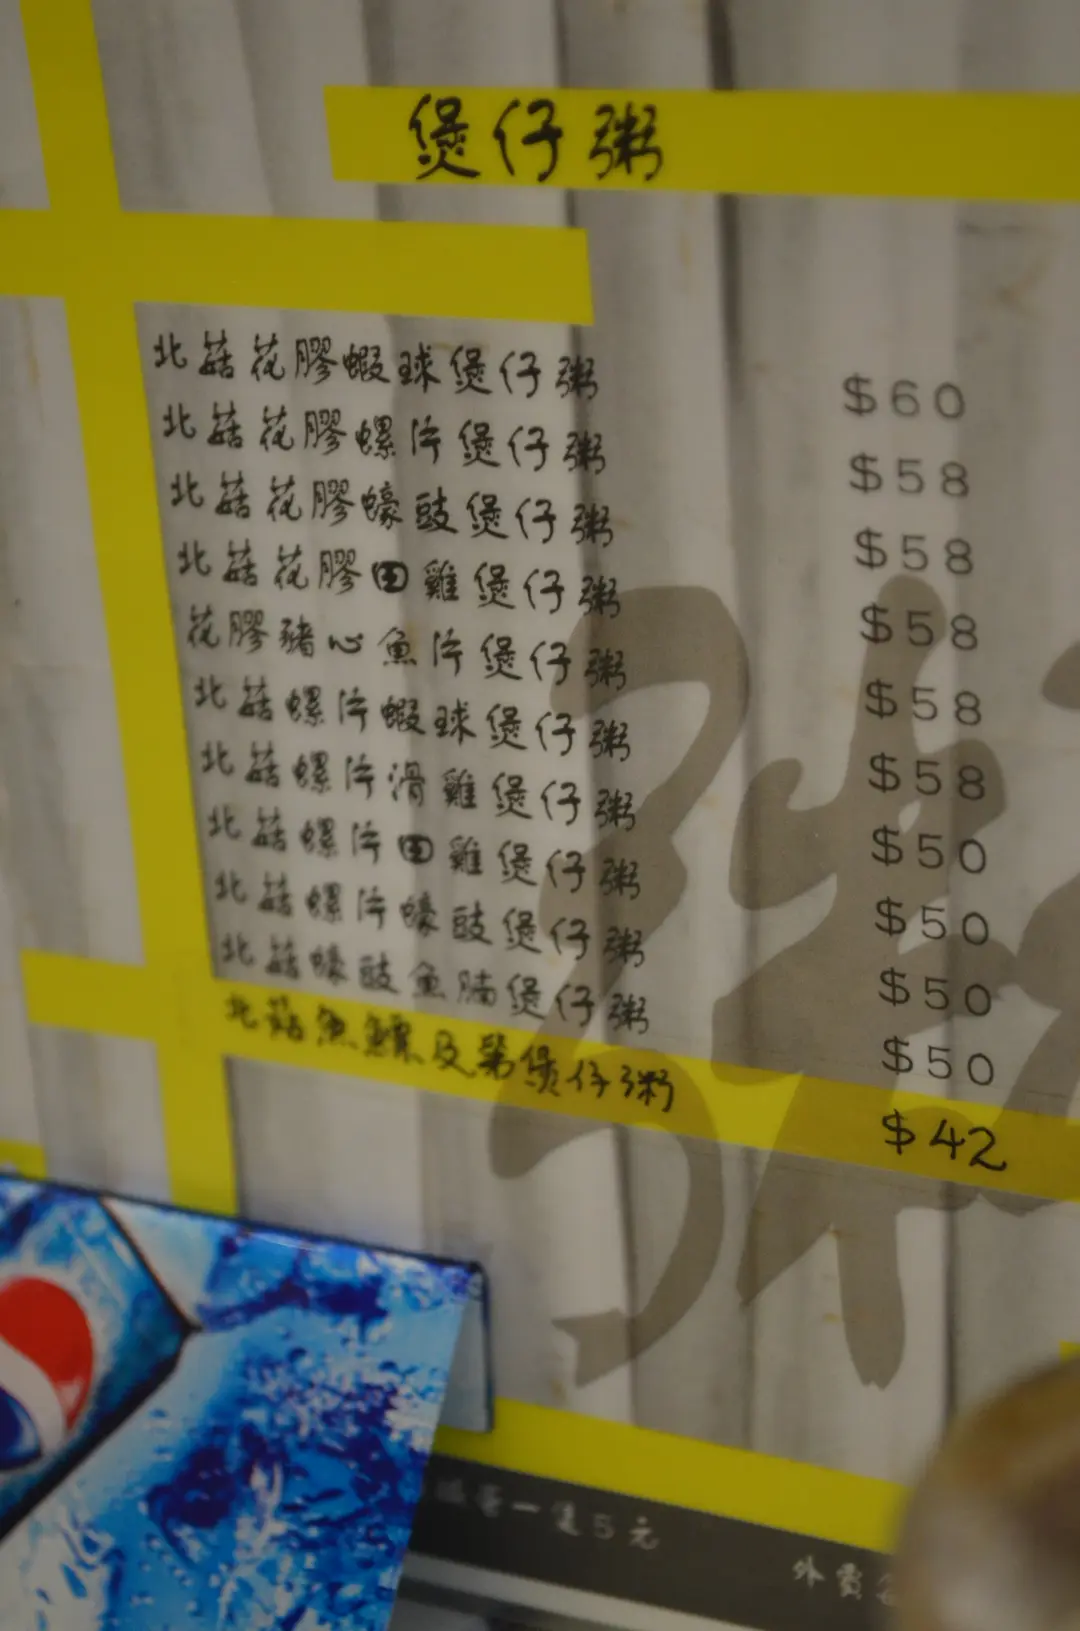 煲仔粥
北菇花膠蝦球煲仔粥 $60
北菇花膠螺片煲仔粥 $58
北菇花膠蠔豉煲仔粥 $58
北菇花膠田雞煲仔粥 $58
花膠豬心魚片煲仔粥 $58
北菇螺片蝦球煲仔粥 $58
北菇螺片滑雞煲仔粥 $50
北菇螺片田雞煲仔粥 $50
北菇螺片蠔豉煲仔粥 $50
北菇蠔豉魚腩煲仔粥 $50
北菇魚鰾及第煲仔粥 $42
粥
一隻5元
外賣